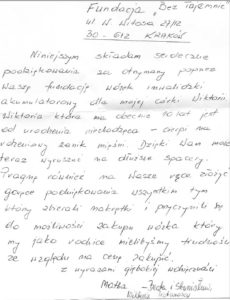 Fundacja "Bez Tajemnic"
ul. W. Witosa
30-612 KRAKÓW
Niniejszym składam serdeczne
podziękowania za otrzymany poprzez
Waszą fundację wózek inwalidzki
akumulatorowy dla mojej córki Wiktorii.
Wiktoria która ma obecnie 10 lat jest
od urodzenia niechodząca - cierpi na
rdzeniowy zanik mięśni. Dzięki Wam może
teraz wyruszać na dłuższe spacery.
Pragnę również na Wasze ręce złożyć
gorące podziękowania wszystkim tym
którzy zbierali nakrętki i przyczynili się
do możliwości zakupu wózka który
my jako rodzice mielibyśmy trudności
ze względu na cenę zakupić.
z wyrazami głębokiej wdzięczności
Matka - Beata i Stanisław,
Wiktoria